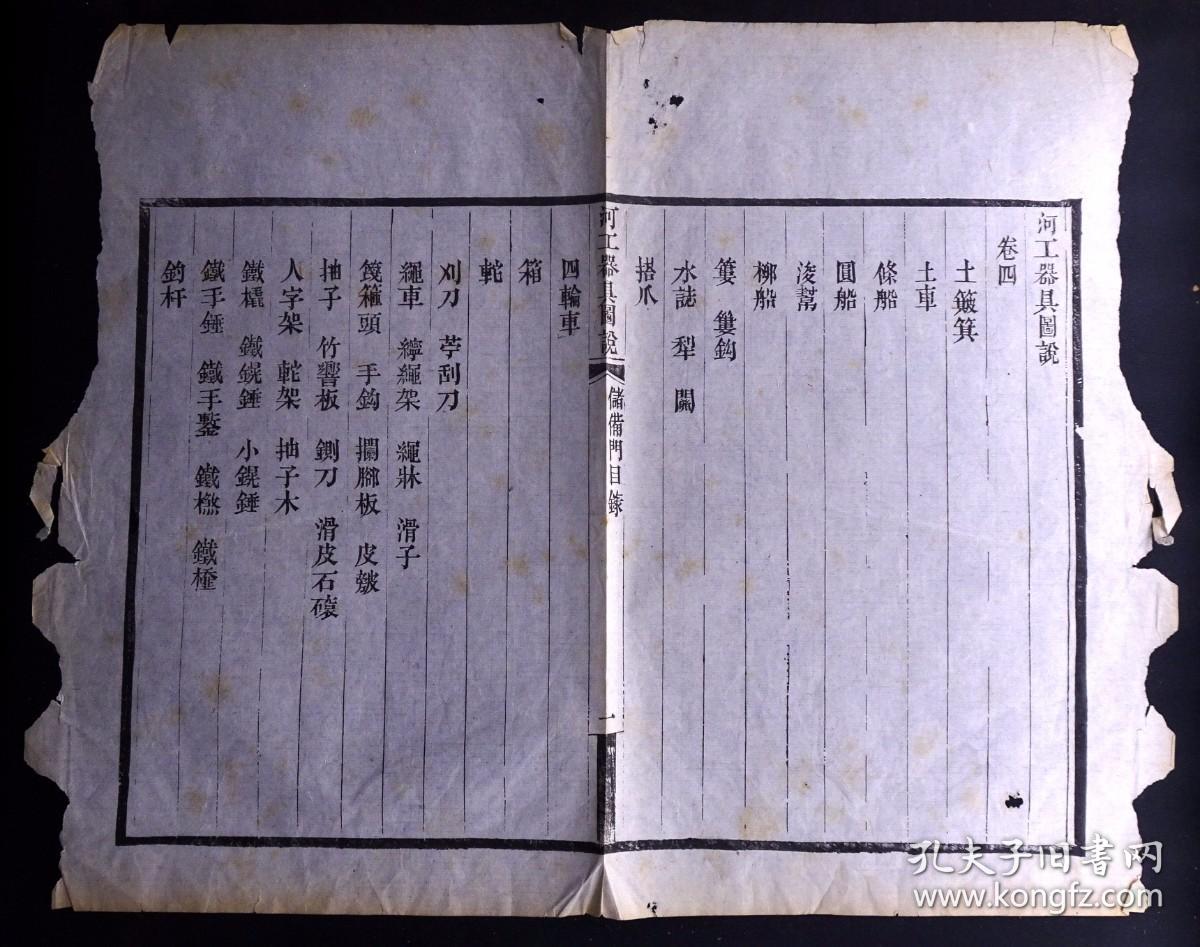 河工器具圖說
卷四
土簸箕
土車
條船
圓船
浚幫
柳船
簍 簍鈎
水誌 犁 關
搭爪
河工器具圖說 儲備門目錄 一
四輪車
箱
䡐
刈刀 苧刮刀
繩車 繂繩架 繩牀 滑子
篾箍頭 手鈎 攔腳板 皮
抽子 竹響板 鍘刀 滑皮石磙
人字架 䡐架 抽子木
鐵橇 鐵鋧錘 小鋧錘
鐵手錘 鐵手鏨 鐵橛
鈞杆
孔夫子旧书网
www.kongfz.com